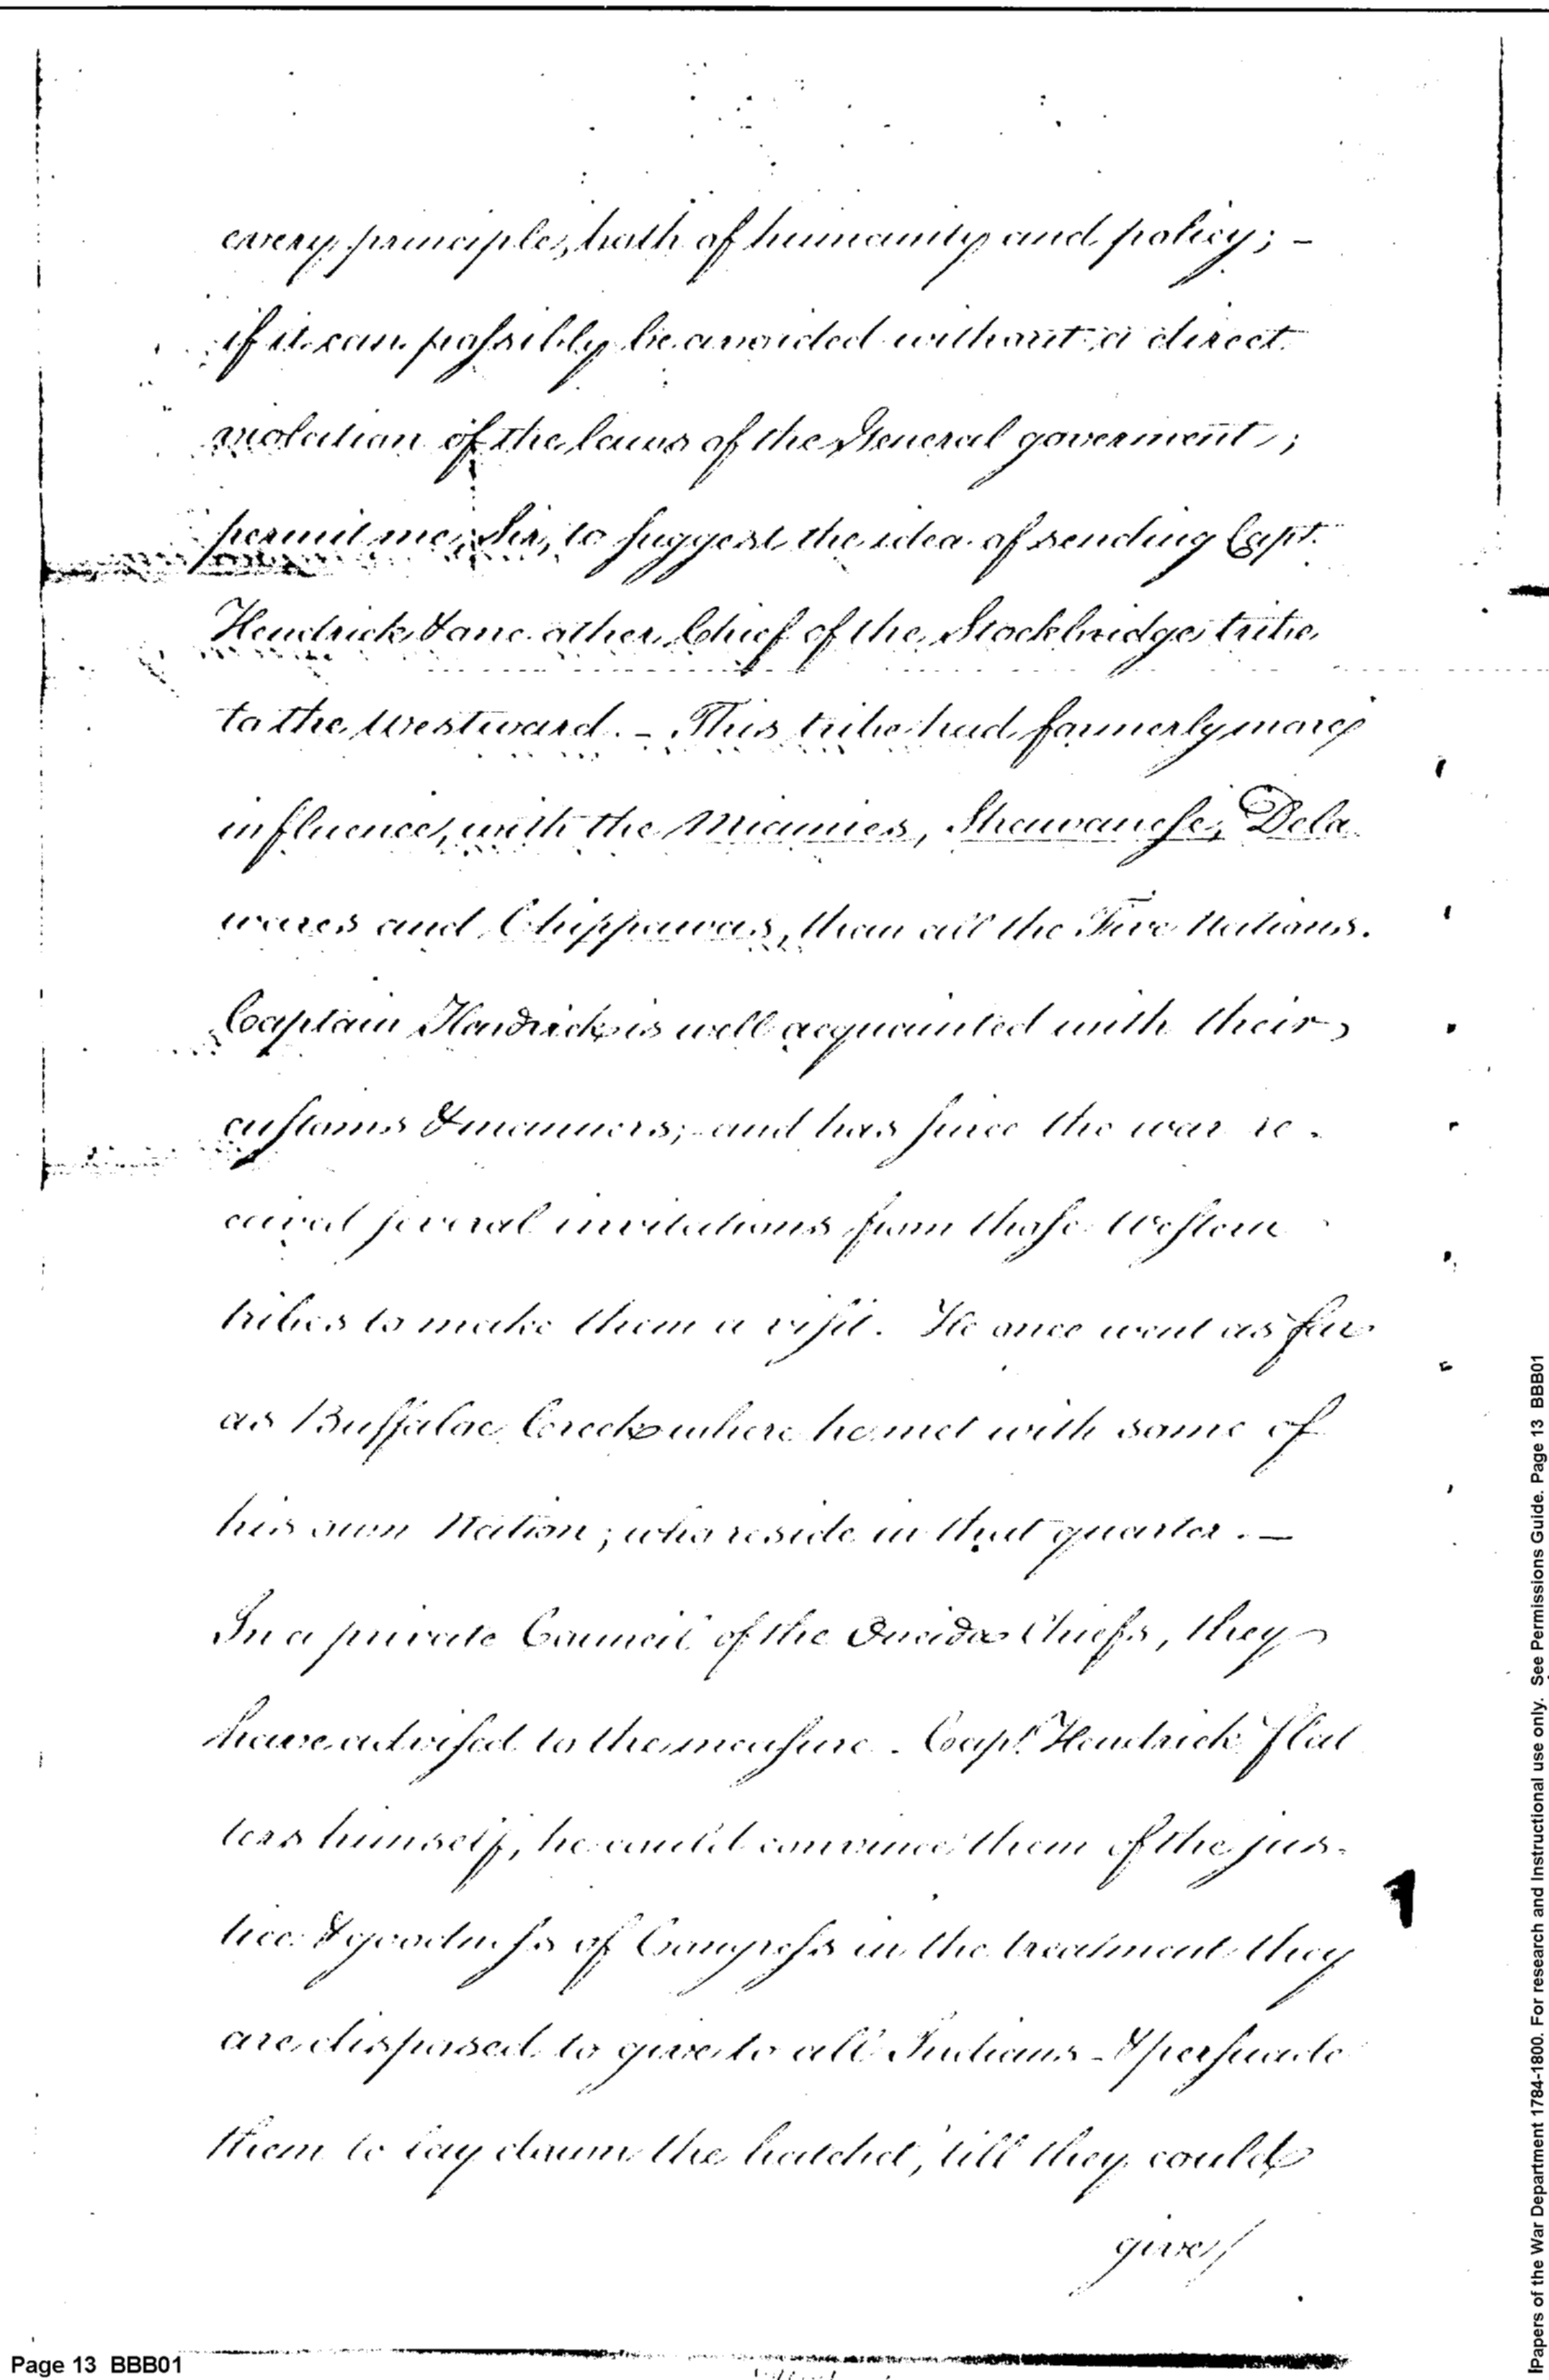 every principle, both of humanity and policy; –
if it can possibly be avoided without a direct
violation of the laws of the General goverment;
permit me, Sir, to suggest the idea of sending Capt.
Hendrick & one other Chief of the Stockbridge tribe
to the Westward. – This tribe had formerly more
influence, with the Miamies, Shawanese, Dela
wares and Chippawas, than all the Five Nations.
Captain Hendrick is well acquainted with their
customs & manners; and has since the war re-
ceived several invitations from those Western
tribes to make them a visit. He once went as far
as Buffaloe Creek where he met with some of
his own Nation; who reside in that quarter. –
In a private Council of the Oneida Chiefs, they
have advised to the measure. Capt. Hendrick flat
ters himself, he could convince them of the jus-
tice & goodness of Congress in the treatment they
are disposed to give to all Indians – & persuade
them to lay down the hatchet, 'till they could
give/
Page 13 BBB01
Papers of the War Department 1784-1800. For research and Instructional use only. See Permissions Guide. Page 13 BBB01